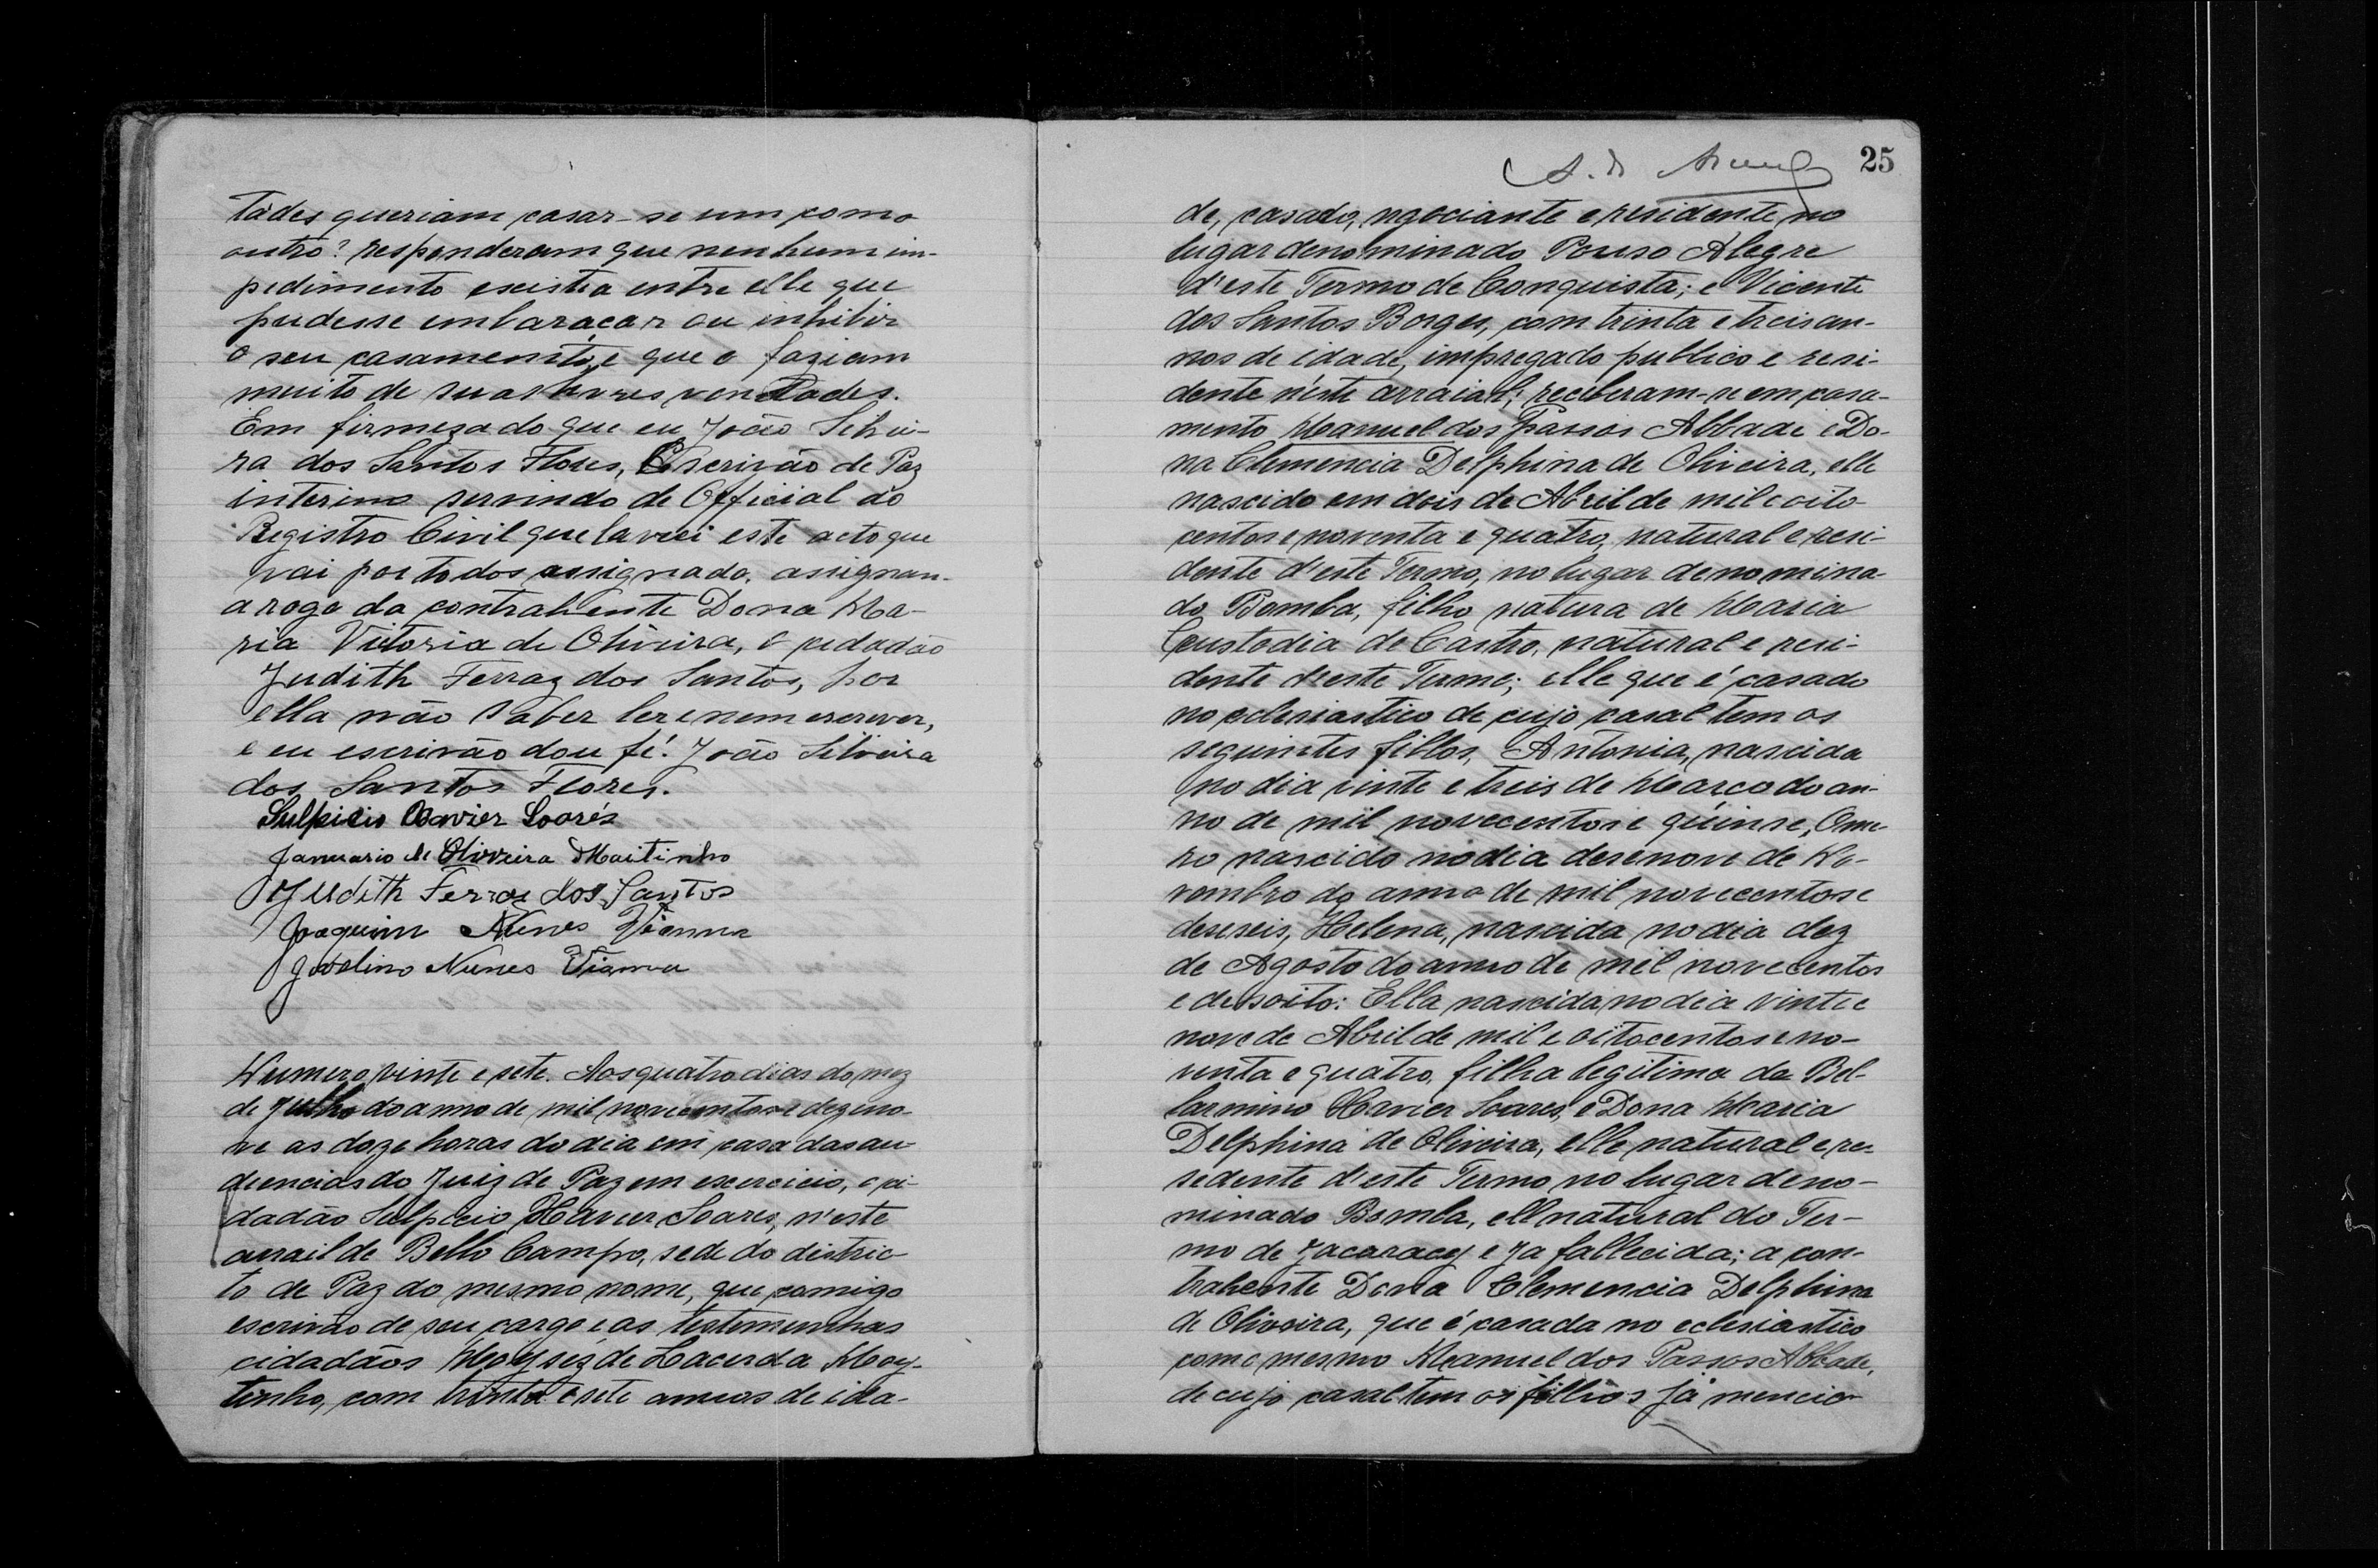 tades queriam casar-se um com o
outro? responderam que nenhum im-
pedimento existia entre elle que
pudesse embaraçar ou inhibir
o seu casamento, e que o faziam
muito de suas livres vontades.
Em firmeza do que eu João Silvei-
ra dos Santos Flores, Escrivão de Paz
interino servindo de Official do
Registro Civil que lavrei este acto que
vai por todos assignado, assignan-
a rogo da contrahente Dona Ma-
ria Vitoria de Oliveira, o cidadão
Judith Ferraz dos Santos, por
ella não saber ler e nem escrever,
e eu escrivão dou fé. João Silveira
dos Santos Flores.
Sulpicio Xavier Soares
Januario de Oliveira Maitinho
Judith Ferraz dos Santos
Joaquim Nunes Vianna
Jovelino Nunes Vianna
Numero vinte e sete. Aos quatro dias do mez
de Julho do anno de mil novecentos e dezeno-
ve as doze horas do dia em casa das au-
diencias do Juiz de Paz em exercicio, o ci-
dadão Sulpicio Xavier Soares, n'este
arrail de Bello Campo, sede do distric-
to de Paz do mesmo nome, que comigo
escrivão de seu cargo e as testemunhas
cidadãos Moysez de Lacerda Moy-
tinho, com trinta e sete annos de ida-
25
de, casado, negociante e residente no
lugar denominado Pouso Alegre
d'este Termo de Conquista; e Vicente
dos Santos Borges, com trinta e treis an-
nos de idade, impregado publico e resi-
dente n'este arraial; receberam-se em casa-
mento Manuel dos Passos Abbade e Do-
na Clemencia Delphina de Oliveira, elle
nascido em dois de Abril de mil e oito
centos e noventa e quatro, natural e resi-
dente d'este Termo, no lugar denomina-
do Bomba, filho natura de Maria
Custodia de Castro, natural e resi-
dente d'este Termo; elle que é casado
no eclesiastico de cujo casal tem os
seguintes filhos, Antonia, nascida
no dia vinte e treis de Março do an-
no de mil novecentos e quinse, Ome-
ro nascido no dia desenove de No-
vembro do anno de mil novecentos e
deseseis, Helena, nascida no dia dez
de Agosto do anno de mil novecentos
e desoito: Ella nascida no dia vinte e
nove de Abril de mil e oitocentos e no-
venta e quatro, filha legitima de Bel-
larmino Xavier Soares e Dona Maria
Delphina de Oliveira, elle natural e re-
sedente d'este Termo no lugar deno-
minado Bomba, ell natural do Ter-
mo de Jacaracy e ja fallecida; a con-
trahente Dona Clemencia Delphina
de Oliveira, que é casada no eclesiastico
com o mesmo Manuel dos Passos Abbade,
de cujo casal tem os filhos já mencio-